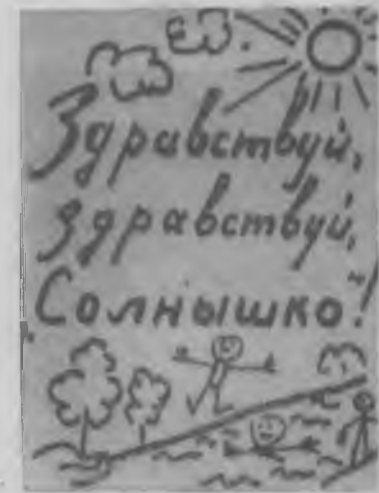 Здравствуй,
здравствуй,
Солнышко"!